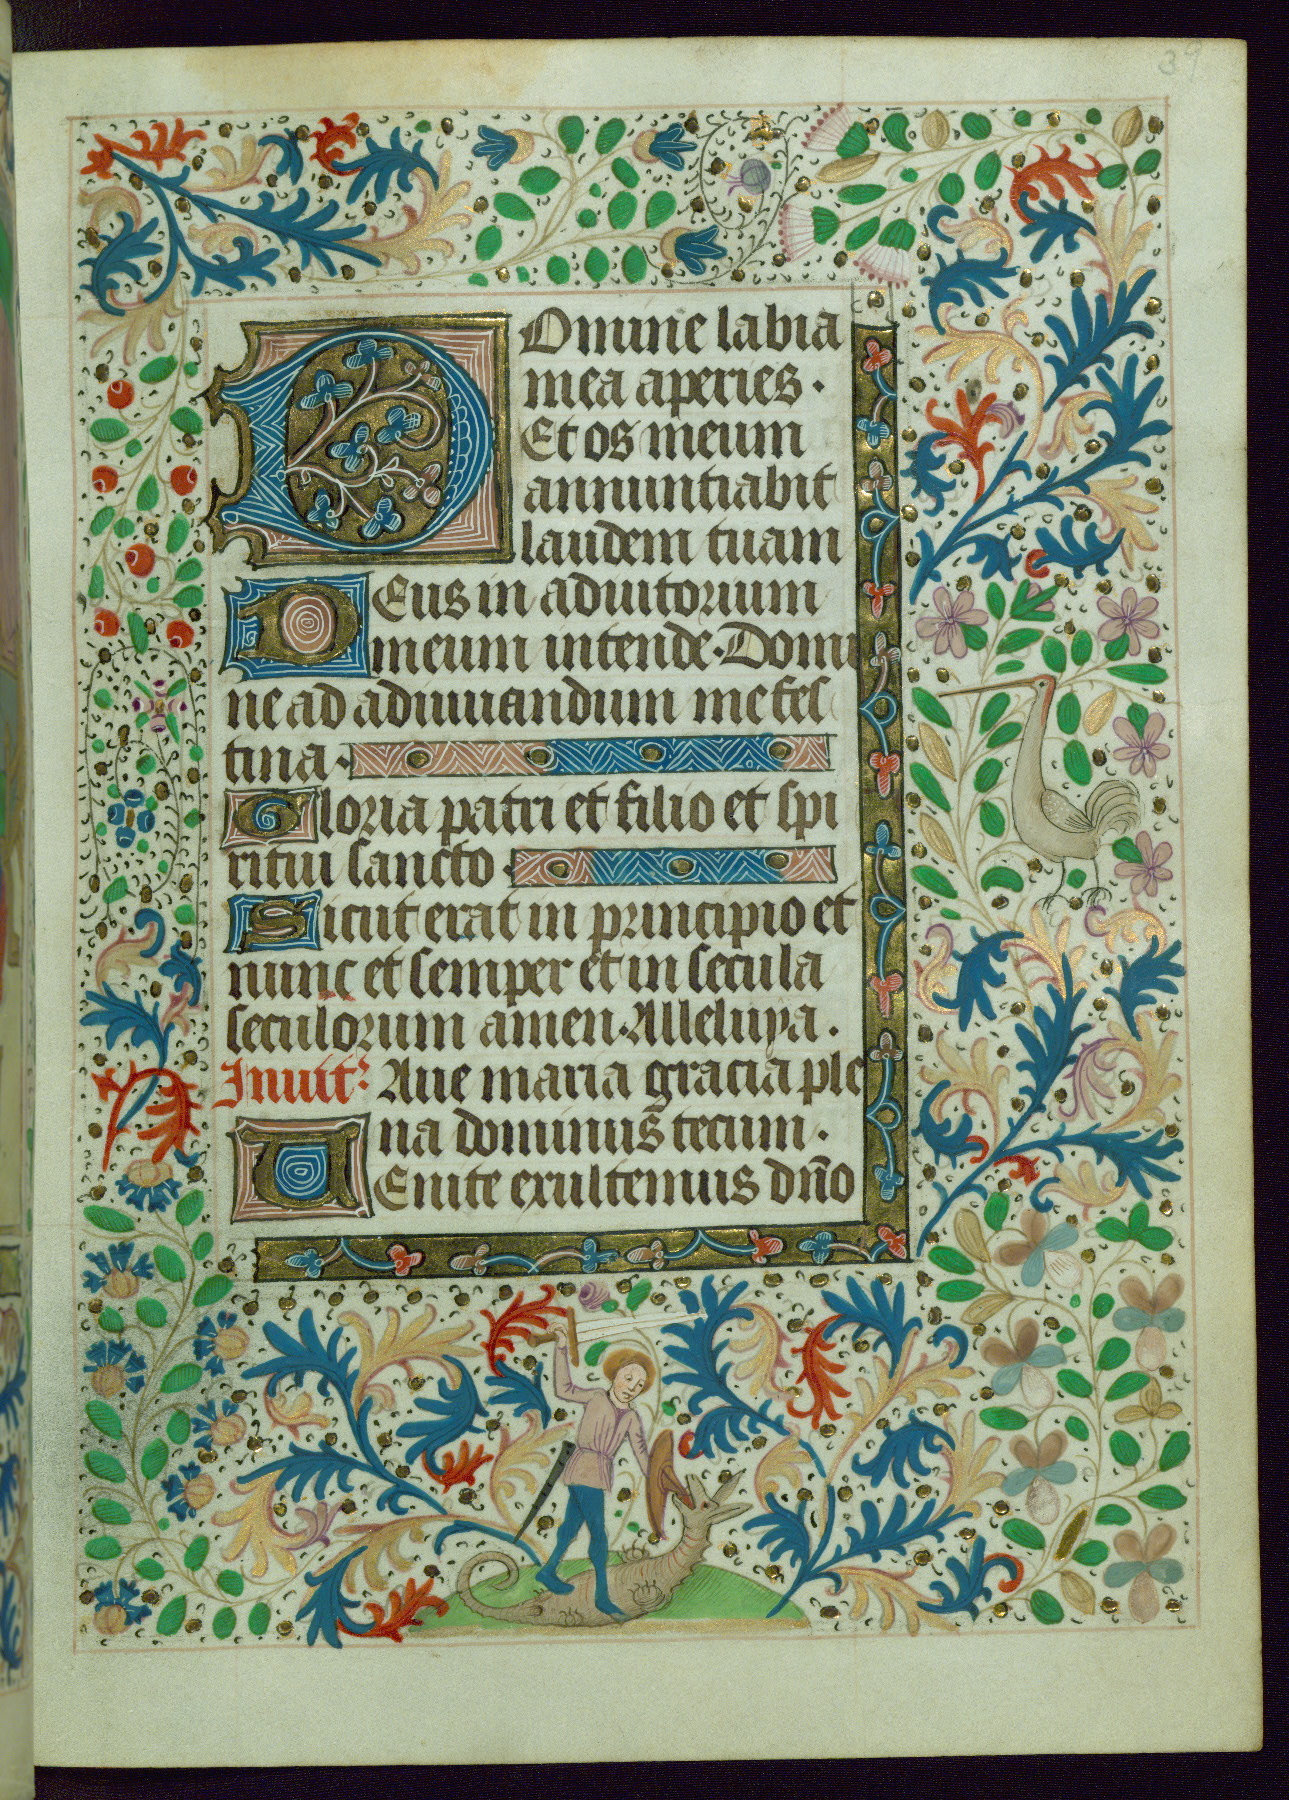 39
Domine labia
mea aperies ·
Et os meum
annuntiabit
laudem tuam
Deus in adiutorium
meum intende · Domi
ne ad adiuuandum me fes
tina ·
Gloria patri et filio et spi
ritui sancto ·
Sicut erat in principio et
nunc et semper et in secula
seculorum amen · Alleluya .
Inuit᷑ Aue maria gracia ple
na dominus tecum ·
Venite exultemus dño